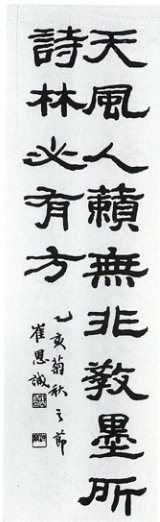 天風人籟無非教墨所
詩林必有方
乙亥菊秋之節
崔恩誠